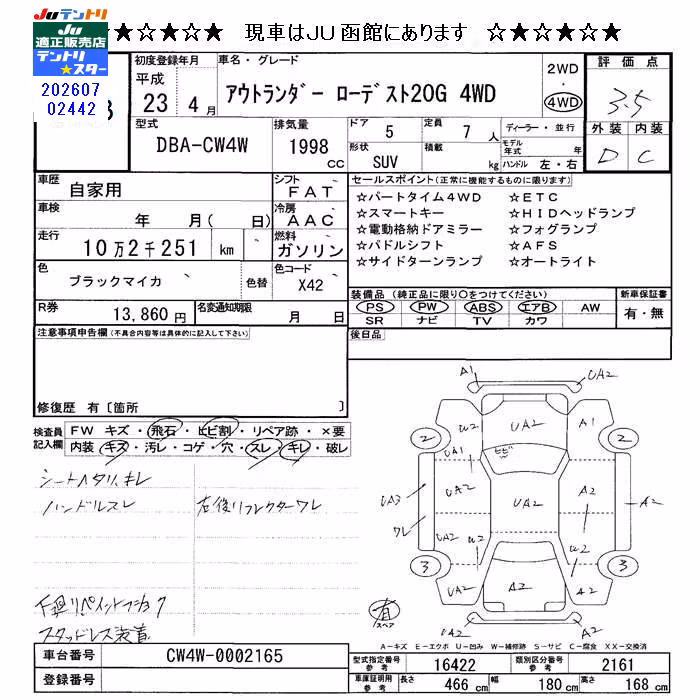 JUテントリ
JU
適正販売店
テントリ
☆スター
202607
02442
★☆★☆★ 現車はJU函館にあります ☆★☆★☆
初度登録年月 車名・グレード
平成
23 4月 アウトランダー ローデスト20G 4WD
2WD
・
4WD
評価点
3.5
外装 内装
D C
型式 排気量 ドア 定員 ディーラー・並行
DBA-CW4W 1998 CC 5 7人
形状 積載 モデル年式 年
SUV kg ハンドル 左・右
車歴 自家用 シフト FAT
車検 年 月(日) 冷房 AAC
走行 10万2千251 km 燃料 ガソリン
色 ブラックマイカ 色替 色コード X42
R券 13,860円 名変通知期限 月 日
セールスポイント(正常に機能するものに限ります)
☆パートタイム4WD ☆ETC
☆スマートキー ☆HIDヘッドランプ
☆電動格納ドアミラー ☆フォグランプ
☆パドルシフト ☆AFS
☆サイドターンランプ ☆オートライト
装備品(純正品に限り○をつけてください) 新車保証書
PS PW ABS エアB AW 有・無
SR ナビ TV カワ
注意事項申告欄(不具合内容等は具体的に記入して下さい) 後日品
修復歴 有〔箇所 〕
検査員記入欄
FW キズ・飛石・ヒビ割・リペア跡・×要
内装 キズ・汚レ・コゲ・穴・スレ・キレ・破レ
シートヘタリ、キレ
ハンドルスレ 右後リフレクターワレ
下廻リペイントフショク
スタッドレス装着
A1 UA2
U2 UA2 A1
2 2
UA1 ヒビ
UA3 UA2 UA2 A2 A2
ワレ
UA2 U2 U2 A2
3 3
UA2 A2 UA2
有
スペア
A-キズ E-エクボ U-凹み W-補修跡 S-サビ C-腐食 XX-交換済
車台番号 CW4W-0002165
登録番号
型式指定番号参考 16422 類別区分番号参考 2161
車庫証明用参考 長さ 466 cm 幅 180 cm 高さ 168 cm